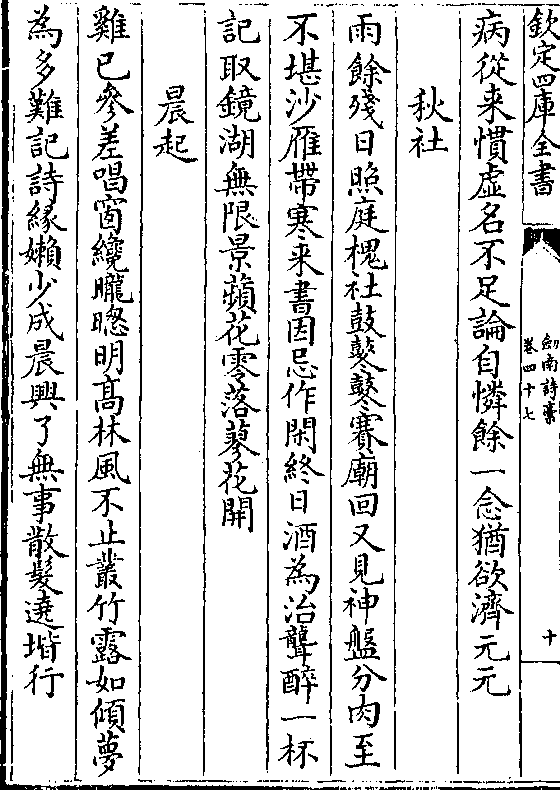 欽定四庫全書
劒南詩藁
卷四十七
十
病從来慣虚名不足論自憐餘一念猶欲濟元元
秋社
雨餘殘日照庭槐社鼓鼕鼕賽廟回又見神盤分肉至
不堪沙雁帶寒来書因忌作閑終日酒為治聾醉一杯
記取鏡湖無限景蘋花零落蓼花開
晨起
雞已參差唱窗纔朧𦗟明髙林風不止叢竹露如傾夢
為多難記詩緣嬾少成晨興了無事散髮遶堦行